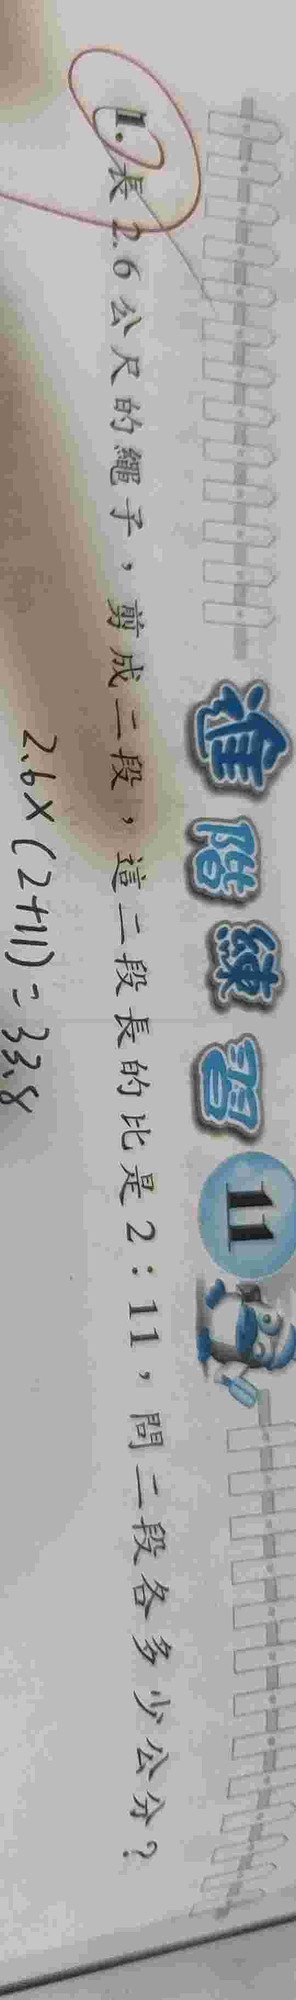 進階練習 11
1. 長 2.6 公尺的繩子，剪成二段，這二段長的比是 2：11，問二段各多少公分？
2.6×(2+11)=33.8